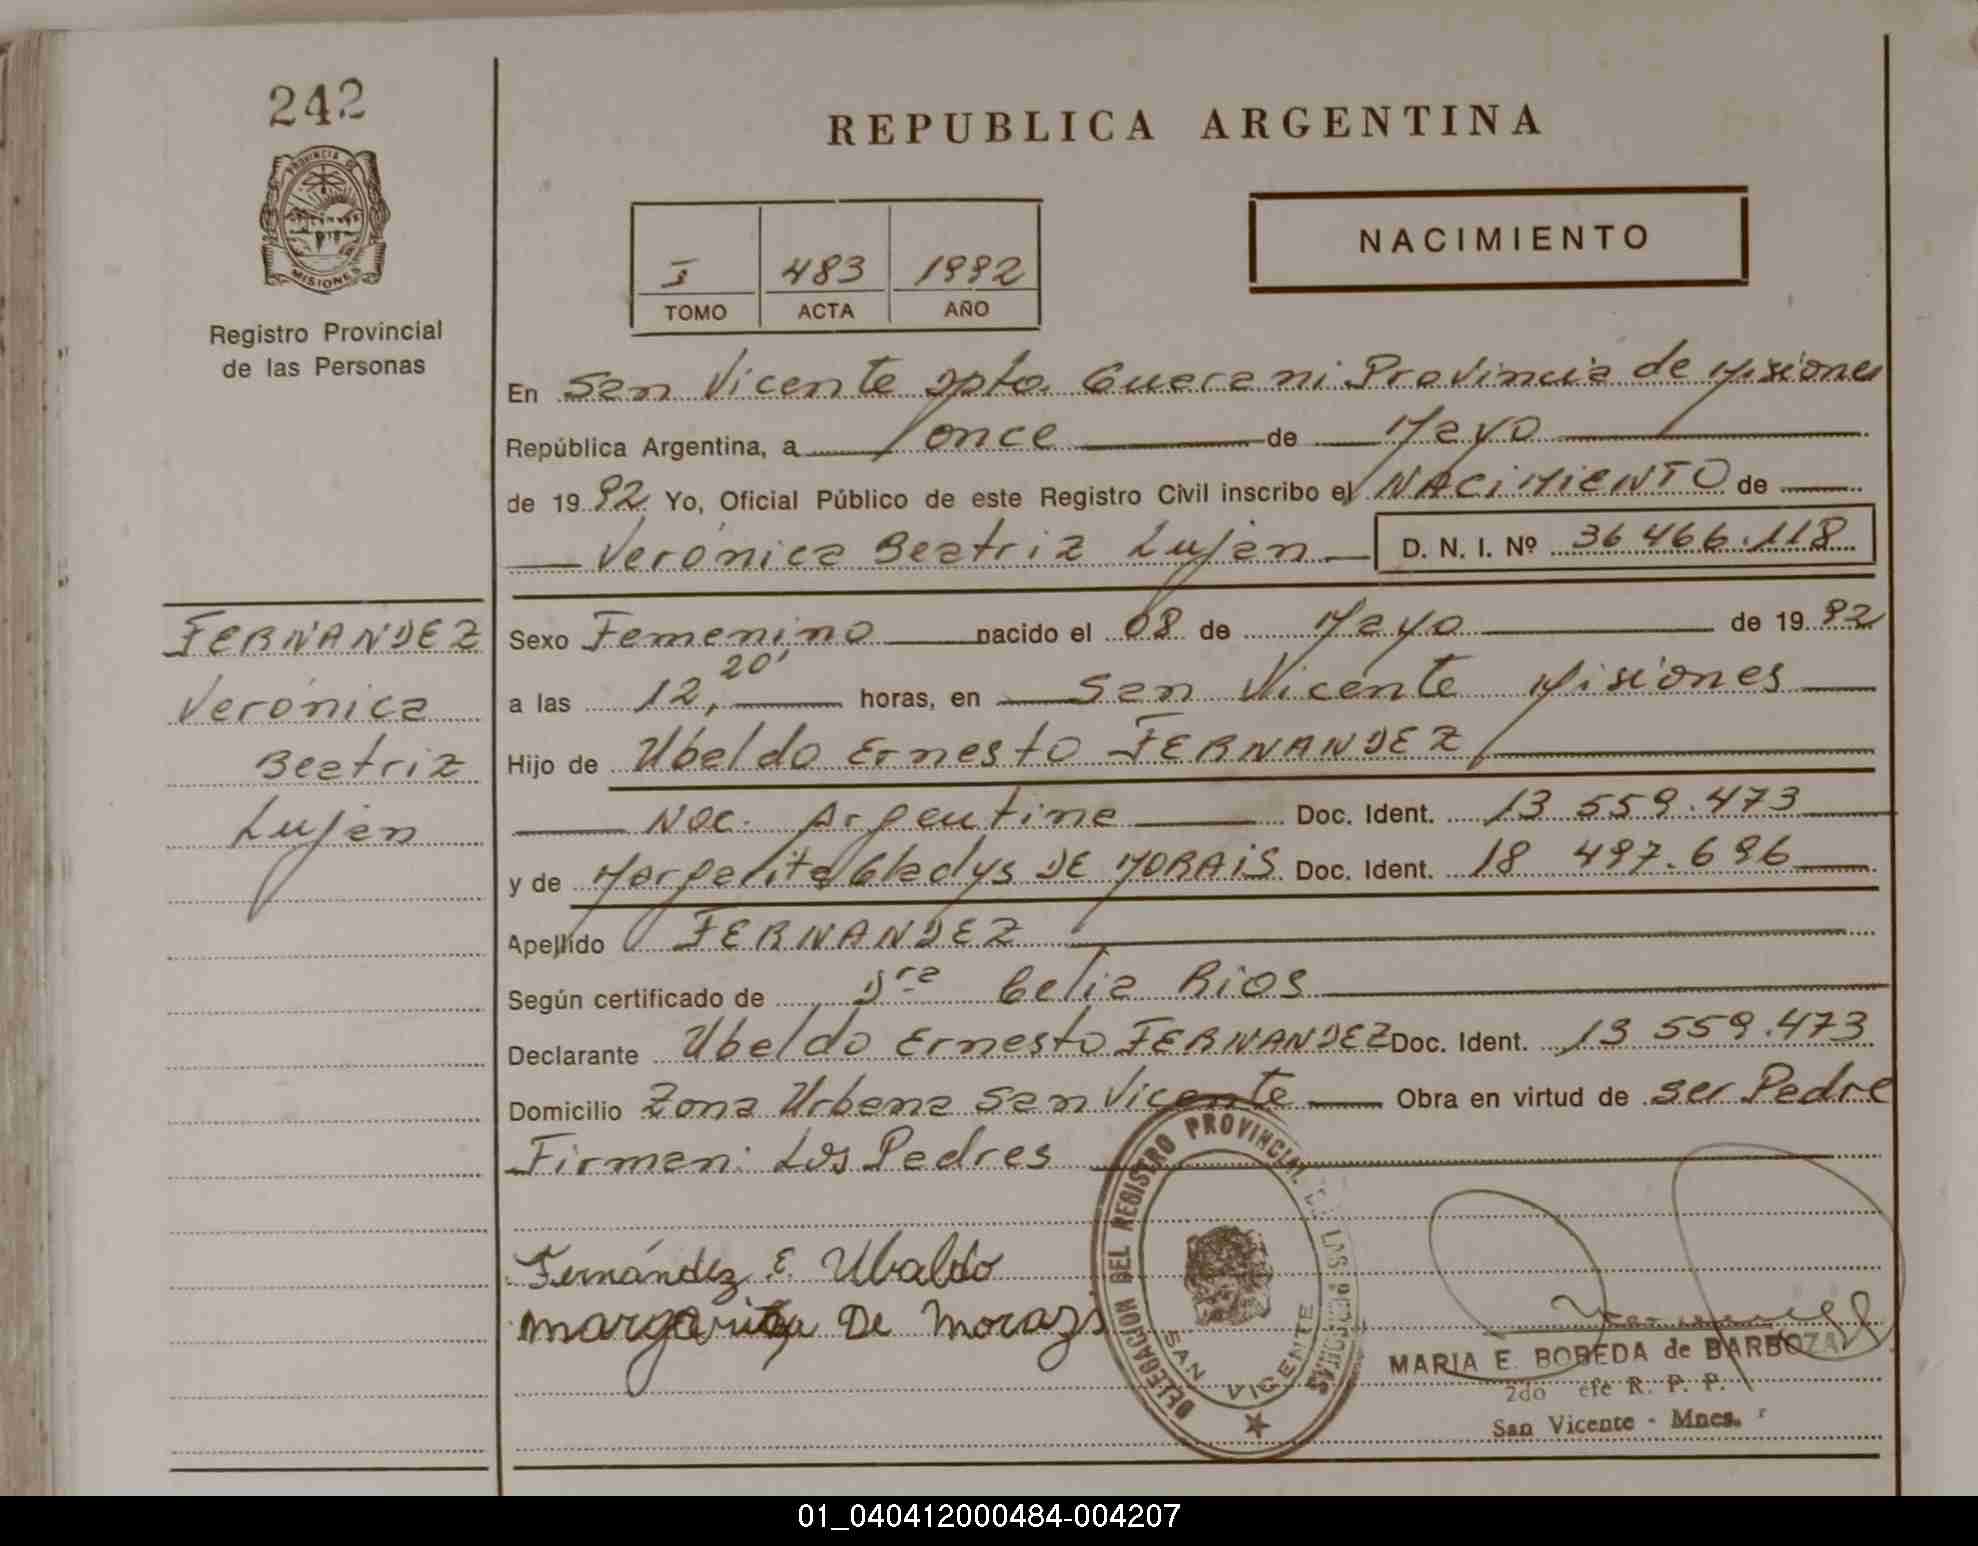 242
PROVINCIA DE
MISIONES
Registro Provincial
de las Personas
FERNANDEZ
Verónica
Beatriz
Lujan
REPUBLICA ARGENTINA
NACIMIENTO
I 483 1992
TOMO ACTA AÑO
En San Vicente Dpto. Guarani Provincia de Misiones
República Argentina, a once de Mayo
de 1992 Yo, Oficial Público de este Registro Civil inscribo el NACIMIENTO de
Verónica Beatriz Lujan D. N. I. Nº 36 466.118
Sexo Femenino nacido el 08 de Mayo de 1992
a las 12,20' horas, en San Vicente Misiones
Hijo de Ubaldo Ernesto FERNANDEZ
Nac. Argentina Doc. Ident. 13 559.473
y de Margarita Gladys DE MORAIS Doc. Ident. 18 497.696
Apellido FERNANDEZ
Según certificado de Dra Celia Rios
Declarante Ubaldo Ernesto FERNANDEZ Doc. Ident. 13 559.473
Domicilio Zona Urbana San Vicente Obra en virtud de ser Padre
Firman: Los Padres
Fernández E. Ubaldo
Margarita De Morais
DELEGACION DEL REGISTRO PROVINCIAL DE LAS PERSONAS
SAN VICENTE
MARIA E. BOBEDA de BARBOZA
2do efe R. P. P.
San Vicente - Mnes.
01_040412000484-004207